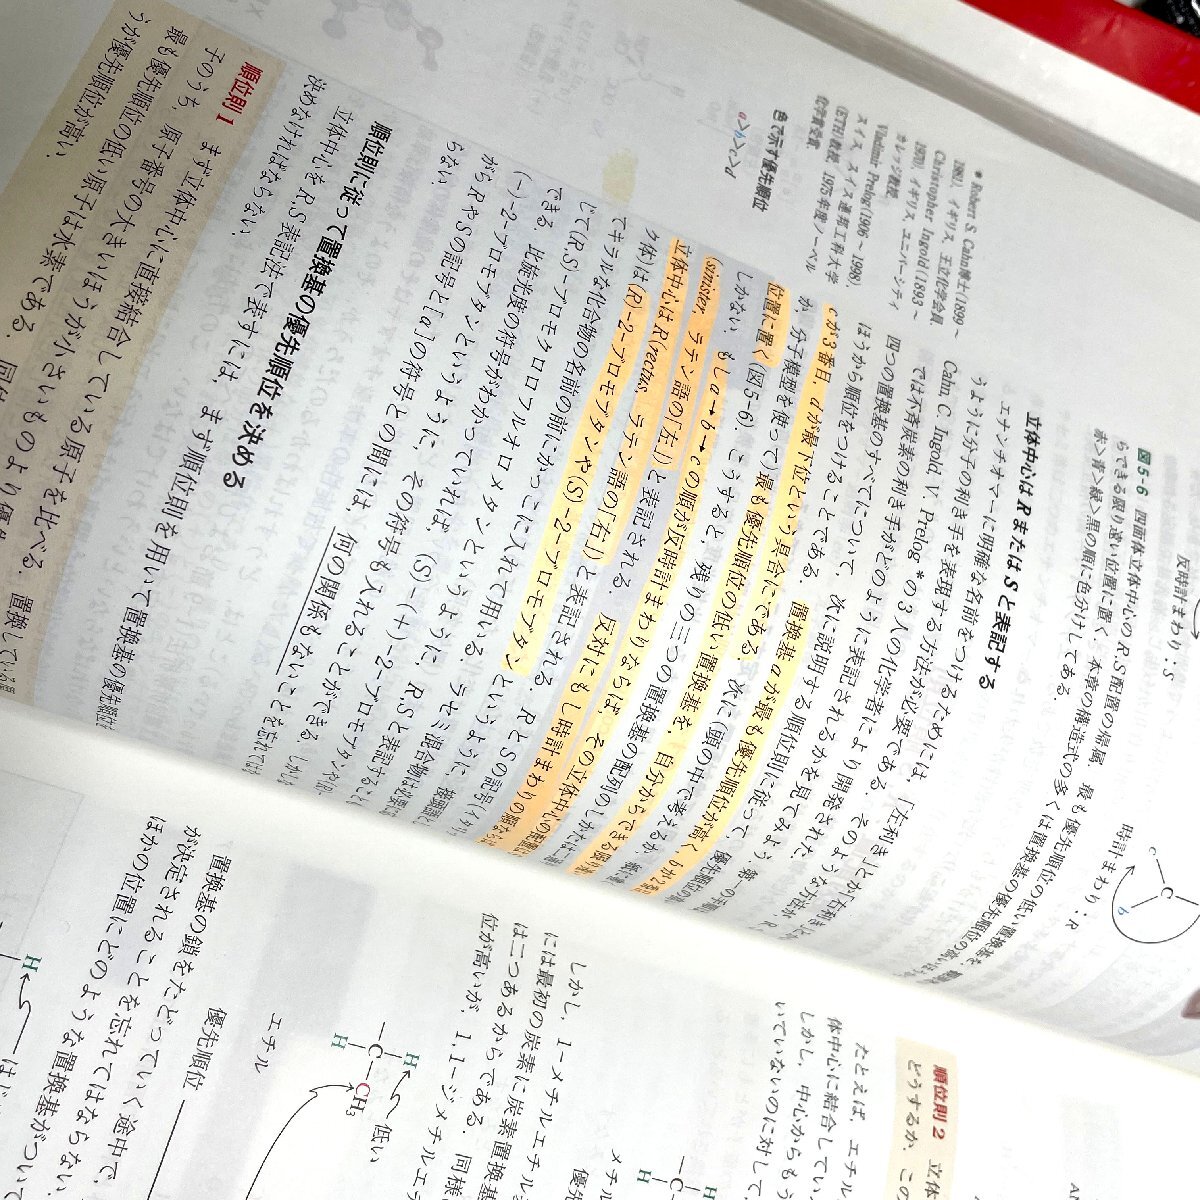 反時計まわり：S
時計まわり：R
図5-6 四面体立体中心のR,S配置の帰属．最も優先順位の低い置換基を
らできる限り遠い位置に置く．本章の構造式の多くは置換基の優先順位の高いほう
赤＞青＞緑＞黒の順に色分けしてある．
立体中心はRまたはSと表記する
エナンチオマーに明確な名前をつけるためには，「左利き」とか「右利き」
うように分子の利き手を表現する方法が必要である．そのような方法が，R.
Cahn, C. Ingold, V. Prelog*の3人の化学者により開発された．
では不斉炭素の利き手がどのように表記されるかを見てみよう．第一の手順
四つの置換基のすべてについて，次に説明する順位則に従って，優先順位の高い
ほうから順位をつけることである．置換基aが最も優先順位が高く，bが2番目
cが3番目，dが最下位という具合にである．次に（頭の中で考えるか，
か，分子模型を使って）最も優先順位の低い置換基を，自分からできる限り遠い
位置に置く（図5-6）．こうすると，残りの三つの置換基の配列のしかたは
しかない．もしa→b→cの順が反時計まわりならば，その立体中心の
(sinister，ラテン語の「左」）と表記される．反対にもし時計まわりの順ならば
立体中心はR（rectus，ラテン語の「右」）と表記される．RとSの記号（イタリ
ク体）は(R)-2-ブロモブタンや(S)-2-ブロモブタンというように，
てキラルな化合物の名前の前にかっこに入れて用いる．ラセミ混合物は必要に応
じて(R,S)-ブロモクロロフルオロメタンというように，R,Sと表記すること
できる．比旋光度の符号がわかっていれば，(S)-(+)-2-ブロモブタンや(R)-
(-)-2-ブロモブタンというように，その符号も入れることができる．しかしな
がらRやSの記号と[α]の符号との間には，何の関係もないことを忘れてはな
らない．
* Robert S. Cahn博士(1899〜
1981)，イギリス，王立化学会員．
Christopher Ingold (1893〜
1970)，イギリス，ユニバーシティ
カレッジ教授．
Vladimir Prelog(1906〜1998)，
スイス，スイス連邦工科大学
(ETH)教授，1975年度ノーベル
化学賞受賞．
色で示す優先順位
a>b>c>d
順位則に従って置換基の優先順位を決める
立体中心をR,S表記法で表すには，まず順位則を用いて置換基の優先順位
決めなければならない．
順位則1 まず立体中心に直接結合している原子を比べる．置換している
子のうち，原子番号の大きいほうが小さいものより優
最も優先順位の低い原子は水素である．同
うが優先順位が高い．
順位則2 立体
どうするか．この
たとえば，エチル
体中心に結合してい
しかし，中心からもう
いていないのに対して，
メチル
優先
しかし，1-メチルエチル
には最初の炭素に炭素置換基
は二つあるからである．同様
位が高いが，1,1-ジメチルエ
C
H
H
CH₃
低い
エチル
優先順位
置換基の鎖をたどっていく途中で，
が決定されることを忘れてはならない．
ほかの位置にどのような置換基がついて
H